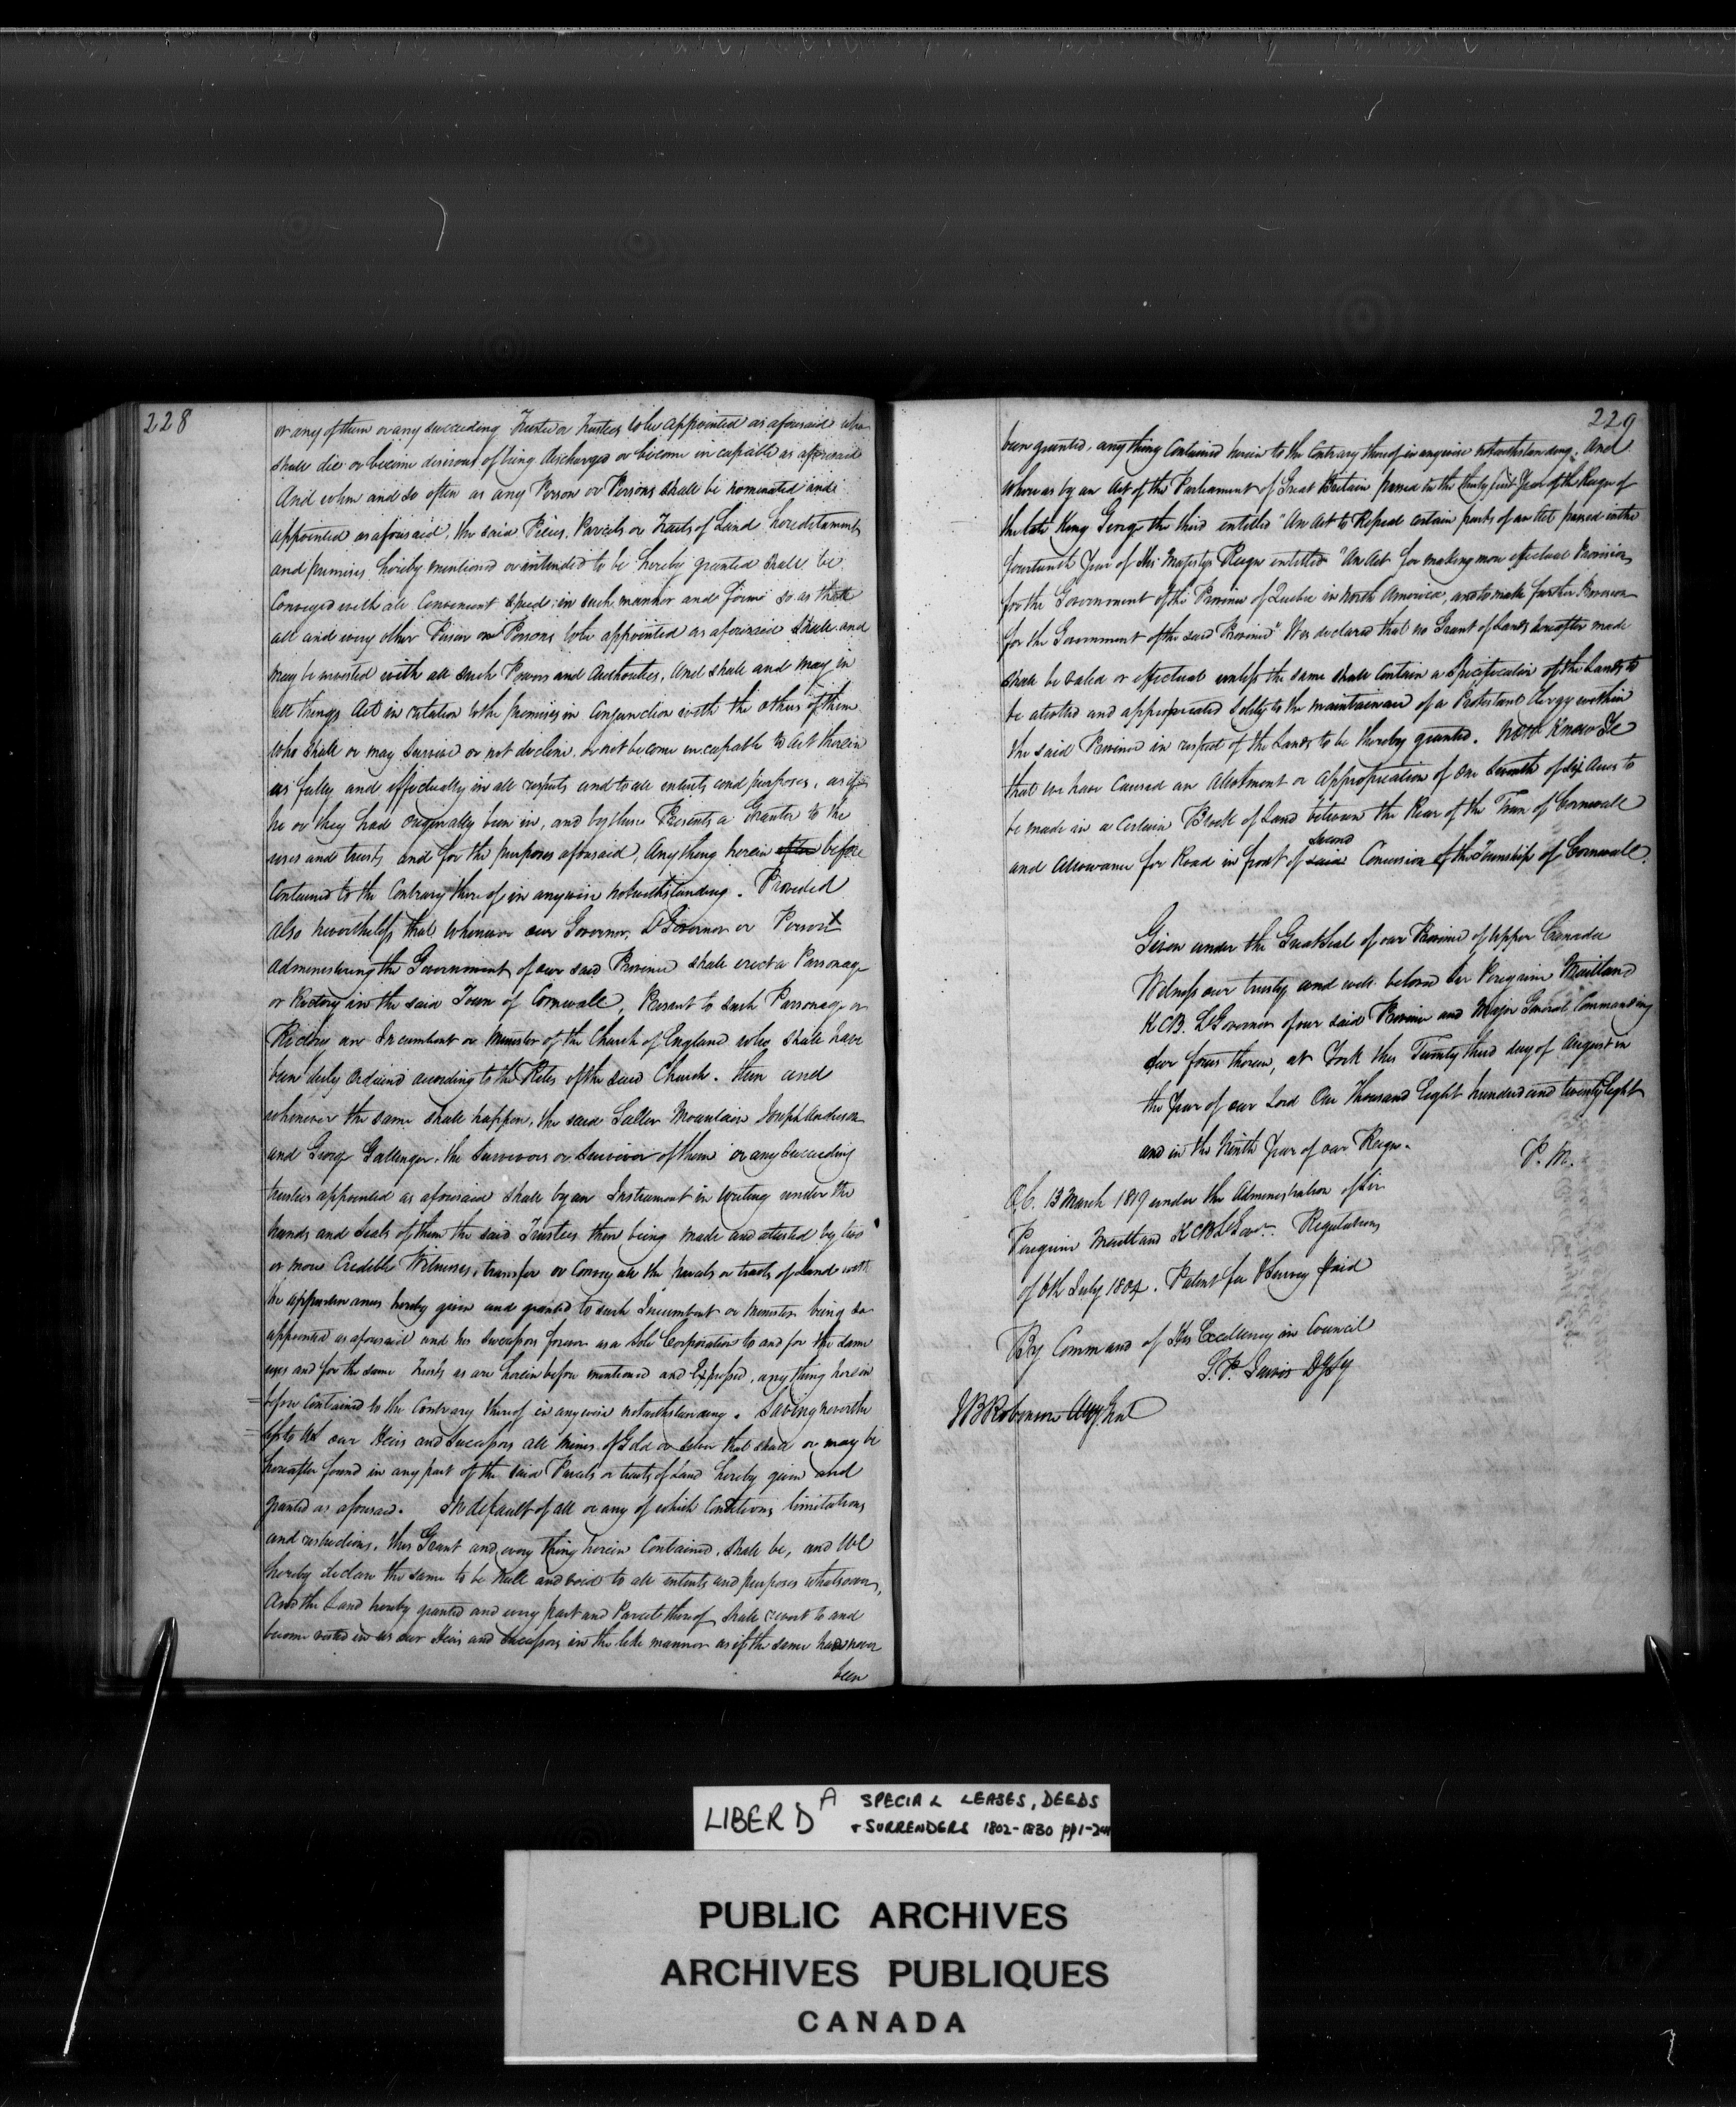 228
or any of them or any succeeding Trustee or Trustees to be appointed as aforesaid who
shall die or become desirous of being discharged or become incapable as aforesaid
And when and so often as any Person or Persons shall be nominated and
appointed as aforesaid, the said Pieces, Parcels or Tracts of Land hereditaments
and premises hereby mentioned or intended to be hereby granted shall be
Conveyed with all Convenient speed in such manner and form so as that
all and every other Person or Persons to be appointed as aforesaid shall and
may be invested with all such Powers and Authorities, And shall and may in
all things Act in relation to the premises in Conjunction with the others of them
who shall or may survive or not decline, or not become incapable to act therein
as fully and effectually in all respects and to all intents and purposes, as if
he or they had originally been in, and by these Presents a Grantee to the
uses and trusts and for the purposes aforesaid, Any thing herein after before
Contained to the Contrary thereof in anywise notwithstanding. Provided
also nevertheless that whenever our Governor, Lt Governor or Person
administering the Government of our said Province shall erect a Parsonage
or Rectory in the said Town of Cornwall, Present to such Parsonage or
Rectory an Incumbent or Minister of the Church of England who shall have
been duly Ordained according to the Rites of the said Church. then and
whenever the same shall happen, the said Salter Mountain Joseph Anderson
and George Gallinger, the Survivors or Survivor of them or any Succeeding
trustees appointed as aforesaid shall by an Instrument in Writing under the
hands and Seals of them the said Trustees then being made and attested by two
or more Credible Witnesses, transfer or Convey all the parcels or tracts of Land with
the appurtenances hereby given and granted to such Incumbent or Minister being so
appointed as aforesaid and his Successors forever as a Sole Corporation to and for the same
uses and for the same Trusts as are herein before mentioned and Expressed, any thing herein
before Contained to the Contrary thereof in anywise notwithstanding. Saving neverthe
less to Us our Heirs and Successors all Mines of Gold or Silver that shall or may be
hereafter found in any part of the said Parcels or tracts of Land hereby given and
granted as aforesaid. In default of all or any of which Conditions, limitations
and restrictions, this Grant and every thing herein Contained, shall be, and We
hereby declare the same to be Null and void to all intents and purposes whatsoever,
And the Land hereby granted and every part and Parcel thereof shall revert to and
become vested in us our Heirs and Successors in the like manner as if the same had never
been
229
been granted, any thing Contained herein to the Contrary thereof in anywise notwithstanding. And
Whereas by an Act of the Parliament of Great Britain passed in the thirty first Year of the Reign of
the late King George the third entitled "An Act to Repeal certain parts of an Act passed in the
fourteenth Year of His Majestys Reign entitled "An Act for making more effectual Provision
for the Government of the Province of Quebec in North America, and to make further Provision
for the Government of the said Province" It is declared that no Grant of Lands hereafter made
shall be valid or effectual unless the same shall Contain a Specification of the Lands to
be allotted and appropriated Solely to the maintainance of a Protestant Clergy within
the said Province in respect of the Lands to be thereby granted. Now Know Ye
that we have Caused an Allotment or Appropriation of One Seventh of six Acres to
be made in a Certain Block of Land between the Rear of the Town of Cornwall
Second
and Allowance for Road in front of said Concession of the Township of Cornwall.
Given under the Great Seal of our Province of Upper Canada
Witness our trusty and well beloved Sir Peregrine Maitland
K.C.B. Lt Governor of our said Province and Major General Commanding
our forces therein, at York this Twenty third day of August in
the Year of our Lord One Thousand Eight hundred and twenty Eight
and in the Ninth Year of our Reign.
P. M.
O.C. 13 March 1819 under the Administration of Sir
Peregrine Maitland KCB Lt Govr. Regulations
of 6th July 1804. Patent fee & Survey Paid
By Command of His Excellency in Council
JB Robinson Atty Genl
LIBER D A SPECIAL LEASES, DEEDS
+ SURRENDERS 1802-1830
PUBLIC ARCHIVES
ARCHIVES PUBLIQUES
CANADA